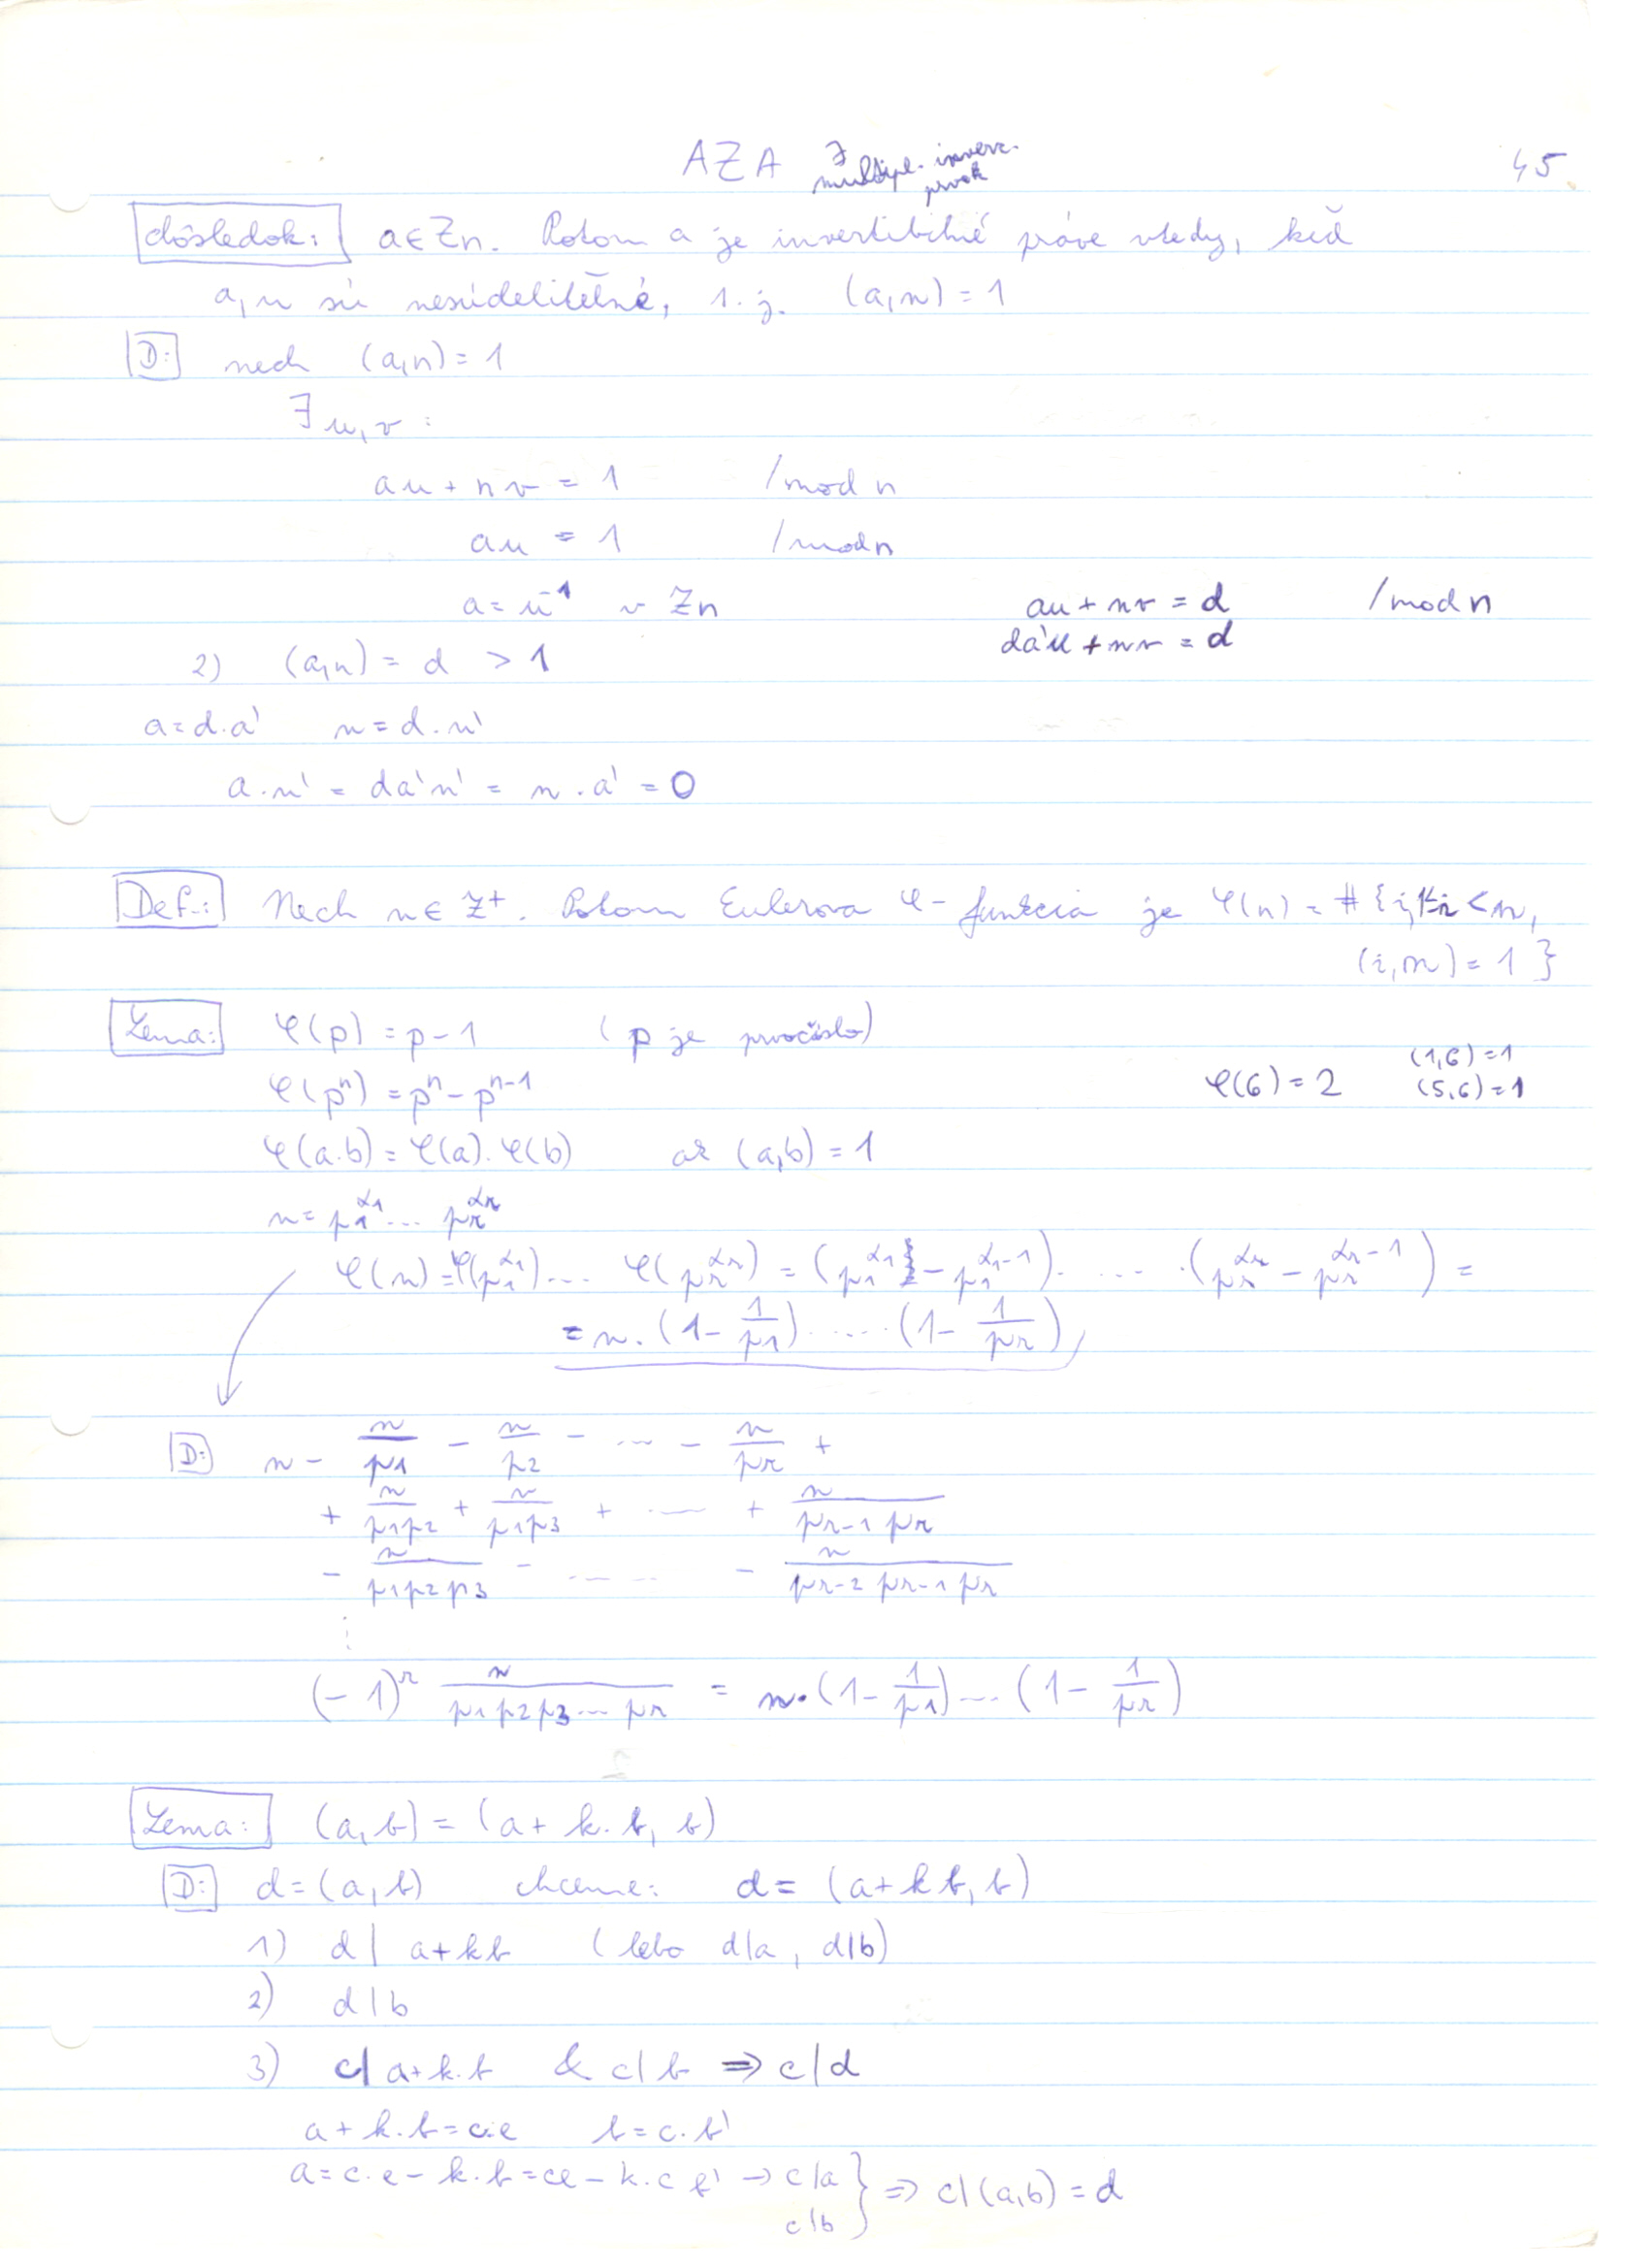 AZA ∃ multipl. inverz. prvok
45
dôsledok: a∈Zn. Potom a je invertibilné práve vtedy, keď
a,n sú nesúdeliteľné, t.j. (a,n)=1
D: nech (a,n)=1
∃ u,v:
au + nv = 1 /mod n
au = 1 /mod n
a = u⁻¹ v Zn
au + nv = d /mod n
da'u + nv = d
2) (a,n) = d > 1
a = d.a' n = d.n'
a.n' = da'n' = n.a' = 0
Def.: Nech n∈Z⁺. Potom Eulerova φ-funkcia je φ(n) = #{i, 1≤i<n,
(i,n)=1}
Lema: φ(p) = p-1 (p je prvočíslo)
φ(pⁿ) = pⁿ - pⁿ⁻¹
φ(6) = 2 (1,6)=1
(5,6)=1
φ(a.b) = φ(a).φ(b) ak (a,b)=1
n = p₁^α₁ ... pᵣ^αᵣ
φ(n) = φ(p₁^α₁) ... φ(pᵣ^αᵣ) = (p₁^α₁ - p₁^(α₁-1)). ... .(pᵣ^αᵣ - pᵣ^(αᵣ-1)) =
= n.(1 - 1/p₁) ..... (1 - 1/pᵣ)
D: n - n/p₁ - n/p₂ - ... - n/pᵣ +
+ n/p₁p₂ + n/p₁p₃ + ... + n/pᵣ₋₁pᵣ
- n/p₁p₂p₃ - ..... - n/pᵣ₋₂pᵣ₋₁pᵣ
⋮
(-1)ʳ n/p₁p₂p₃...pᵣ = n.(1 - 1/p₁)...(1 - 1/pᵣ)
Lema: (a,b) = (a + k.b, b)
D: d=(a,b) chceme: d = (a+kb, b)
1) d | a+kb (lebo d|a, d|b)
2) d|b
3) c| a+k.b & c|b ⇒ c|d
a + k.b = c.e b = c.b'
a = c.e - k.b = ce - k.c b' → c|a } ⇒ c|(a,b) = d
c|b